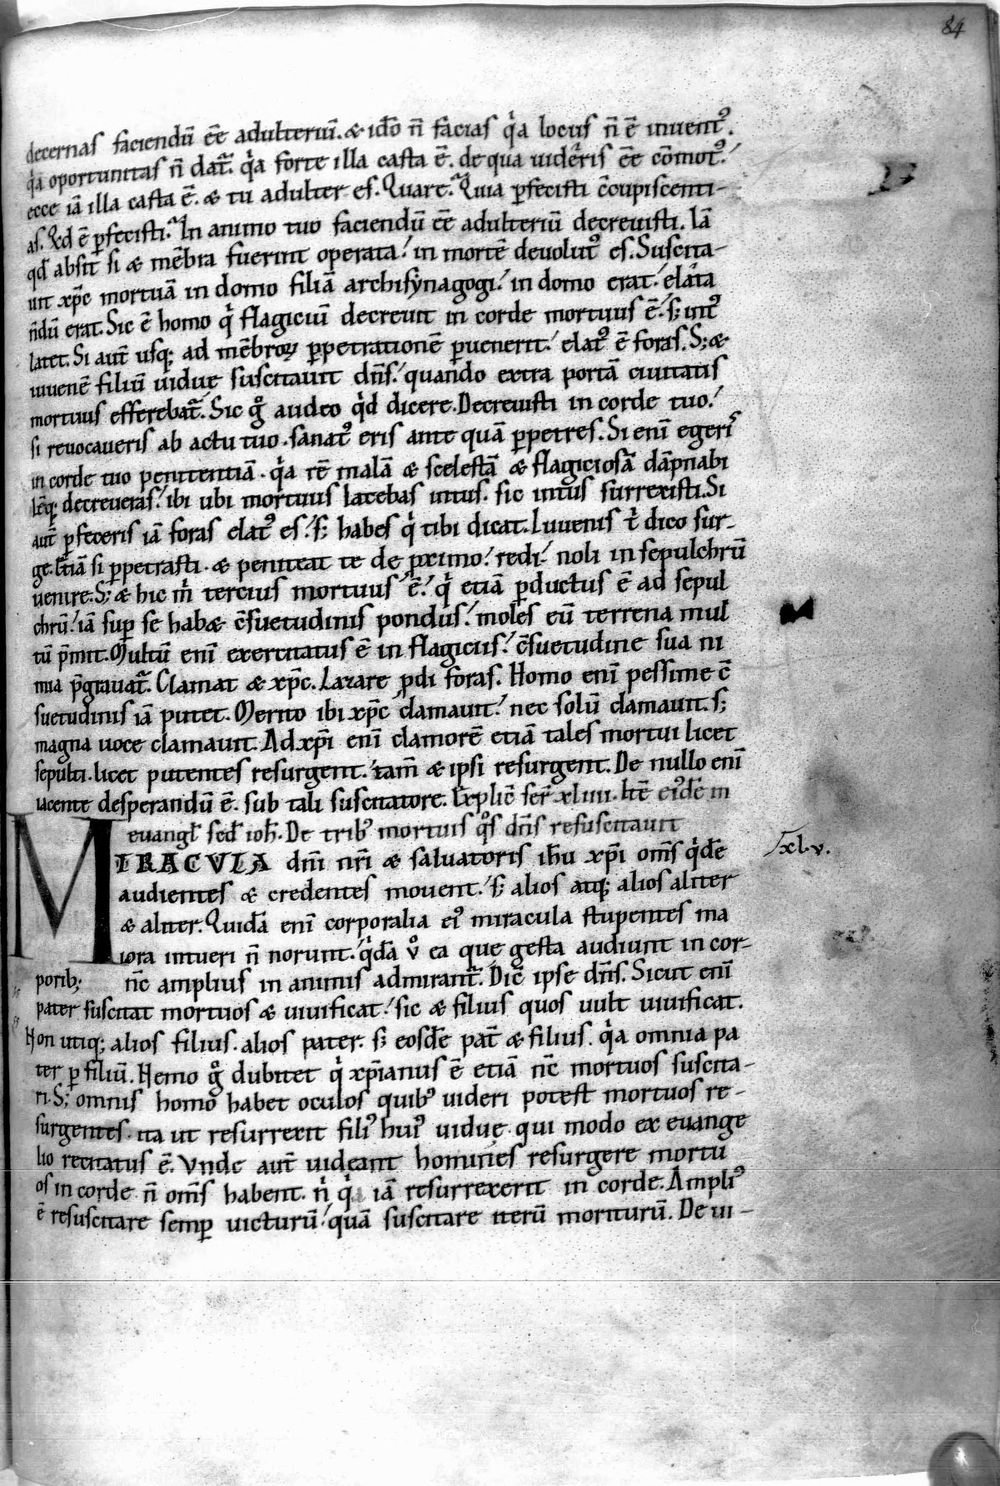 84
decernas faciendū eē adulteriū. & idō n̄ facias q̇a locus n̄ ē inuent᷒.
q̇a oportunitas n̄ dat̄. q̇a forte illa casta ē. de qua uideris eē cōmot᷒.
ecce iā illa casta ē. & tu adulter es. Quare? Quia ꝑfecisti c̄cupiscenti-
as. Qd ē ꝑfecisti? In animo tuo faciendū eē adulteriū decreuisti. Iā
qd̄ absit si & mēbra fuerint operata / in mortē deuolut᷒ es. Suscita-
uit xp̄c mortuā in domo filiā archisynagogi / in domo erat / elata
n̄dū erat. Sic ē homo q̇ flagiciū decreuit in corde mortuus ē / s; int᷒
latet. Si aut̄ usq; ad mēbroꝝ ꝑpetrationē ꝑuenerit / elat᷒ ē foras. S; &
iuuenē filiū uiduę suscitauit dn̄s / quando extra portā ciuitatis
mortuus efferebat̄. Sic g̊ audeo q̇d dicere. Decreuisti in corde tuo /
si reuocaueris ab actu tuo . sanat᷒ eris ante quā ꝑpetres. Si enī egeris
in corde tuo penitentiā . q̇a rē malā & scelestā & flagiciosā dāpnabi
lēq; decreueras / ibi ubi mortuus latebas intus . sic intus surrexisti. Si
aut̄ ꝑfeceris iā foras elat᷒ es / s; habes q̇ tibi dicat. Iuuenis t̄ dico sur-
ge. Etiā si ꝑpetrasti . & peniteat te de proximo / redi / noli in sepulchrū
uenire. S; & hic in̄ tercius mortuus ē / q̇ etiā ꝑductus ē ad sepul
chrū / iā sup̄ se habæ c̄suetudinis pondus / moles eū terrena mul
tū p̄mit. Multū enī exercitatus ē in flagiciis / c̄suetudine sua ni
mia p̄grauat̄. Clamat & xp̄c. Lazare ꝓdi foras. Homo enī pessime c̄
suetudinis iā putet. Merito ibi xp̄c clamauit / nec solū clamauit. s;
magna uoce clamauit. Ad xp̄i enī clamorē etiā tales mortui licet
sepulti . licet putentes resurgent / tam̄ & ipsi resurgent. De nullo enī
iacente desperandū ē . sub tali suscitatore. Explic̄ ser̄ xliiii. Itē eiusdē in
euangl̄ sed̄ ioh̄. De trib᷒ mortuis q̊s dn̄s resuscitauit
MIRACVLA dn̄i nr̄i & saluatoris ih̄u xp̄i om̄s q̇dē
audientes & credentes mouent / s; alios atq; alios aliter
& aliter. Quidā enī corporalia ei᷒ miracula stupentes ma
iora intueri n̄ norunt / q̇dā v̊ ea que gesta audiunt in cor-
porib; nc̄ amplius in animis admirant̄. Dic̄ ipse dn̄s. Sicut enī
pater suscitat mortuos & uiuificat / sic & filius quos uult uiuificat.
Non utiq; alios filius . alios pater. s; eosdē pat̄ & filius . q̇a omnia pa
ter ꝑ filiū. Nemo g̊ dubitet q̇ xp̄ianus ē etiā nc̄ mortuos suscita-
ri. S; omnis homo habet oculos quib᷒ uideri potest mortuos re-
surgentes . ita ut resurrexit fili᷒ hui᷒ uiduę qui modo ex euange
lio recitatus ē. Vnde aut̄ uideant homines resurgere mortu
os in corde n̄ om̄s habent . n̄ q̇ iā resurrexerit in corde. Ampli᷒
ē resuscitare semp̄ uicturū / quā suscitare iterū moriturū. De ui-
xlv.